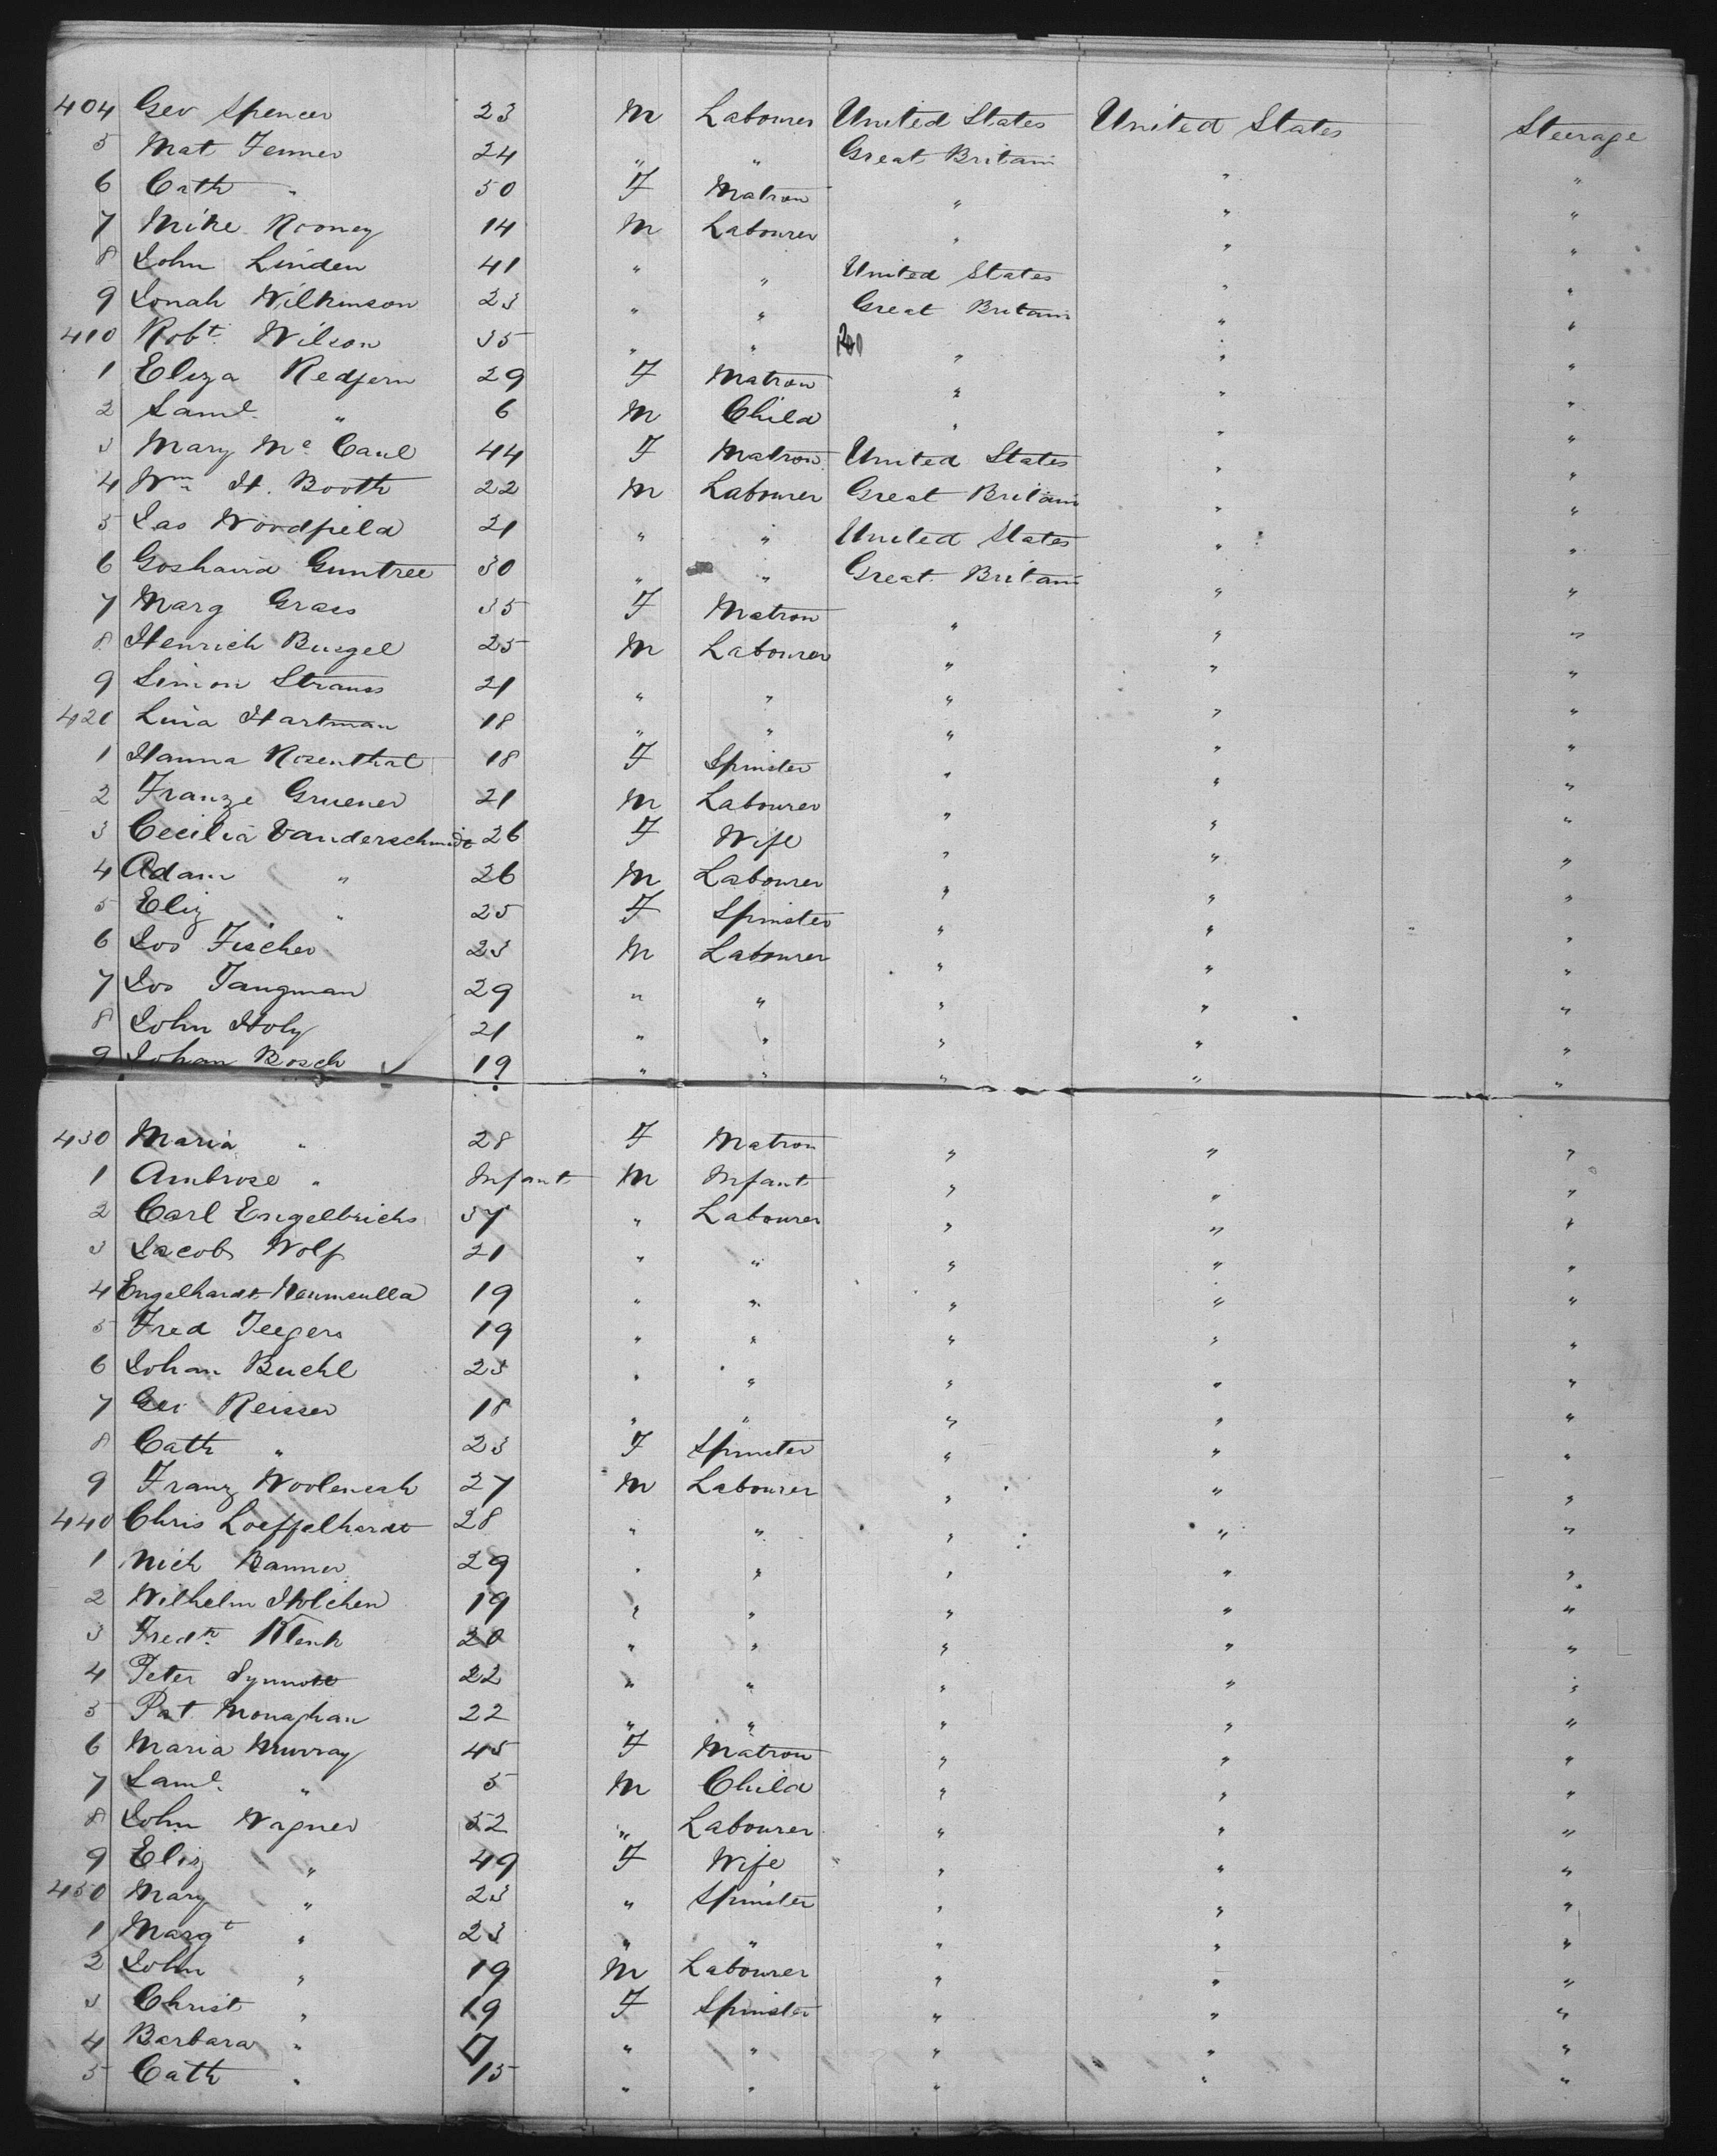 404 Geo Spencer 23 M Labourer United States United States Steerage
5 Mat Fenner 24 " " Great Britain " "
6 Cath " 50 F Matron " " "
7 Mike Rooney 14 M Labourer " " "
8 John Linden 41 " " United States " "
9 Jonah Wilkinson 23 " " Great Britain " "
410 Robt. Wilson 35 " " " " "
1 Eliza Redfern 29 F Matron " " "
2 Saml. " 6 M Child " " "
3 Mary Mc Caul 44 F Matron United States " "
4 Wm H. Booth 22 M Labourer Great Britain " "
5 Jas Woodfield 21 " " United States " "
6 Goshaird Guntree 30 " " Great Britain " "
7 Marg Grass 35 F Matron " " "
8 Henrich Bungel 25 M Labourer " " "
9 Simon Strauss 21 " " " " "
420 Lina Hartman 18 " " " " "
1 Hanna Rosenthal 18 F Spinster " " "
2 Franze Gruener 21 M Labourer " " "
3 Cecilia Vanderschmidt 26 F Wife " " "
4 Adam " 26 M Labourer " " "
5 Eliz " 25 F Spinster " " "
6 Jos Fischer 23 M Labourer " " "
7 Jos Tangman 29 " " " " "
8 John Holy 21 " " " " "
9 Johan Bosch 19 " " " " "
430 Maria " 28 F Matron " " "
1 Ambrose " Infant M Infant " " "
2 Carl Engelbrichs 37 " Labourer " " "
3 Jacob Wolf 21 " " " " "
4 Engelhardt 19 " " " " "
5 Fred Teegers 19 " " " " "
6 Johan Buehl 23 " " " " "
7 Geo Reisser 18 " " " " "
8 Cath " 23 F Spinster " " "
9 Franz 27 M Labourer " " "
440 Chris Loeffelhardt 28 " " " " "
1 Nich Banner 29 " " " " "
2 Wilhelm Holchen 19 " " " " "
3 Fredk. Klenk 20 " " " " "
4 Peter Synnott 22 " " " " "
5 Pat Monaghan 22 " " " " "
6 Maria Murray 45 F Matron " " "
7 Saml. " 5 M Child " " "
8 John Wagner 52 " Labourer " " "
9 Eliz " 49 F Wife " " "
450 Mary " 23 " Spinster " " "
1 Margt " 23 " " " " "
2 John " 19 M Labourer " " "
3 Christ " 19 F Spinster " " "
4 Barbara " " " " " "
5 Cath " 15 " " " " "